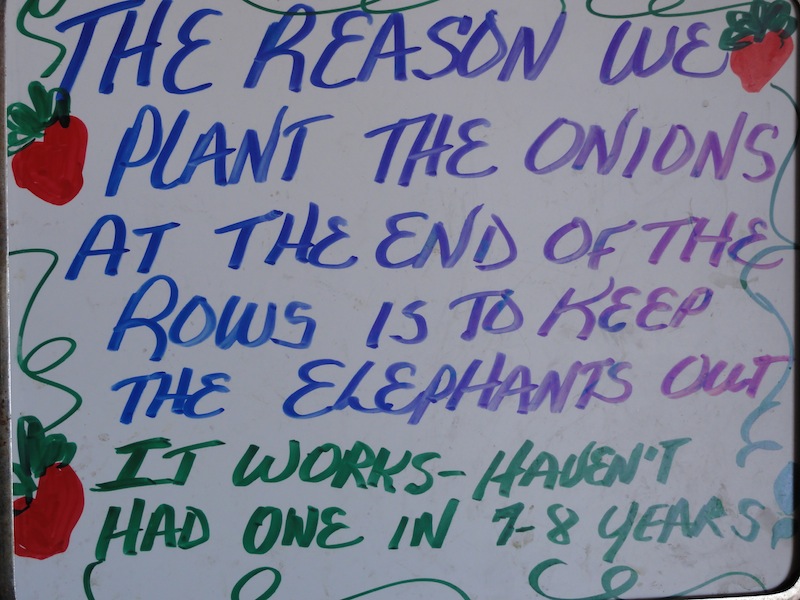 THE REASON WE
PLANT THE ONIONS
AT THE END OF THE
ROWS IS TO KEEP
THE ELEPHANTS OUT
IT WORKS - HAVEN'T
HAD ONE IN 7-8 YEARS